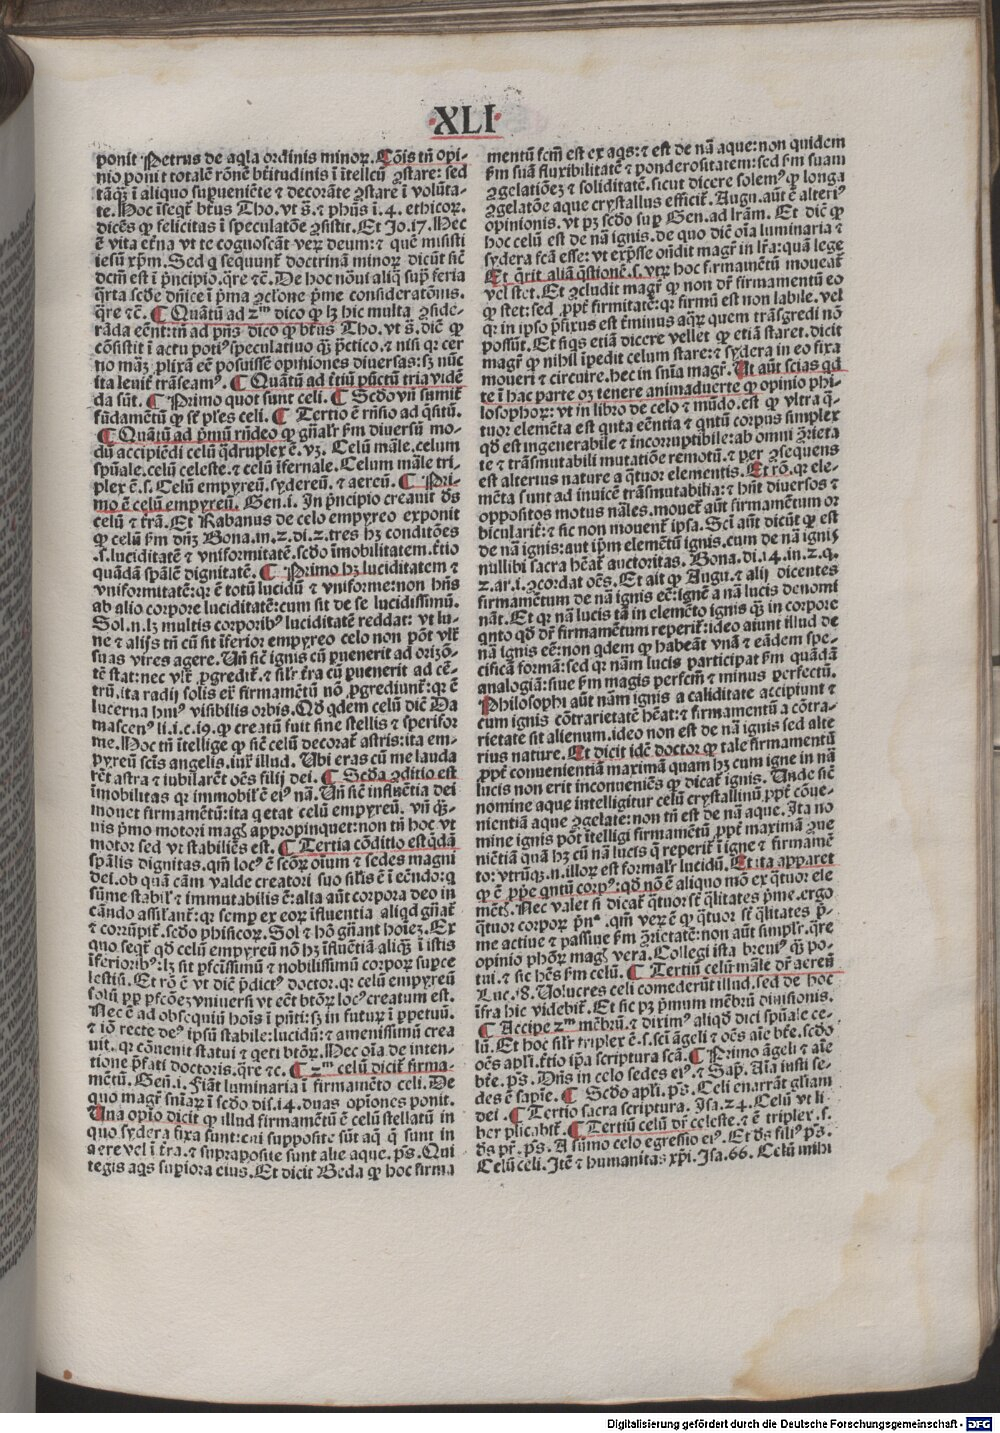 XLI
ponit Petrus de aqla ordinis minoꝝ. Cōis tn̄ opi-
nio ponit totalē rōnē btitudinis ī ītellcū ꝯstare: sed
tāqꝫ ī aliquo supueniēte ⁊ decorāte ꝯstare ī volūta-
te. Hoc īseqt̄ btus Tho. vt s̄. ⁊ phūs ī .4. ethicoꝝ.
dicēs ꝙ felicitas ī speculatōe ꝯsistit. Et Jo.17. Hec
ē vita et̄na vt te cognoscāt verꝫ deum: ⁊ quē misisti
iesū xp̄m. Sed q sequunt̄ doctrinā minoꝝ dicūt sic̄
dcm̄ est ī p̄ncipio. qre ⁊c̄. De hoc nōui aliq̄ sup̄ feria
q̄rta scd̄e dn̄ice ī p̄ma ꝯclōne p̄me consideratōnis.
qre ⁊c̄. ¶ Quātū ad 2ᵐ dico ꝙ lꝫ hic multa ꝯside-
rāda eēnt: tn̄ ad pn̄s dico ꝙ btus Tho. vt s̄. dic̄ ꝙ
cōsistit ī actu potiꝰ speculatiuo qꝫ p̄ctico. ⁊ nisi qꝛ cer
no māꝫ plixā eē posuissē opiniones diuersas: sꝫ nūc
ita leuit̄ trāseamꝰ. ¶ Quātū ad t̄tiū pūctū tria vidē
da sūt. ¶ Primo quot sunt celi. ¶ Scd̄o vn̄ sumit̄
fūdamētū ꝙ sr̄ pl̄es celi. ¶ Tertio ē rn̄sio ad q̄sitū.
¶ Quātū ad p̄mū rn̄deo ꝙ gn̄alr̄ ẜm diuersū mo-
dū accipiēdi celū q̄druplex ē. vꝫ. Celū māle. celum
spūale. celū celeste. ⁊ celū īfernale. Celum māle tri-
plex ē. s. Celū empyreū. sydereū. ⁊ aereū. ¶ Pri-
mo ē celū empyreū. Gen.i. In p̄ncipio creauit d̄s
celū ⁊ t̄rā. Et Rabanus de celo empyreo exponit
ꝙ celū ẜm dn̄ꝫ Bona. in .2. di. 2. tres hꝫ conditōes
.s. luciditatē ⁊ vniformitatē. scd̄o īmobilitatem. t̄tio
quādā spālē dignitatē. ¶ Primo hꝫ luciditatem ⁊
vniformitatē: qꝛ ē totū lucidū ⁊ vniforme: non hn̄s
ab alio corpore luciditatē: cum sit de se lucidissimū.
Sol .n. lꝫ multis corporibꝰ luciditatē reddat: vt lu-
ne ⁊ alijs tn̄ cū sit īferior empyreo celo non pōt vlr̄
suas vires agere. Un̄ sic̄ ignis cū puenerit ad orizō-
tē stat: nec vlt̄ ꝓgredit̄. ⁊ silr̄ t̄ra cū puenerit ad cē-
trū. ita radij solis et̄ firmamētū nō ꝓgrediunt̄: qꝛ ē
lucerna huiꝰ visibilis orbis. Qd̄ qdem celū dic̄ Da
mascenꝰ li.i.c.19. ꝙ creatū fuit sine stellis ⁊ sperifor
me. Hoc tn̄ ītellige ꝙ sic̄ celū decorat̄ astris: ita em-
pyreū scīs angelis. iux̄ illud. Ubi eras cū me lauda
rēt astra ⁊ iubilarēt oēs filij dei. ¶ Scd̄a ꝯditio est
īmobilitas qꝛ immobil̄ ē eiꝰ nā. Un̄ sic̄ influētia dei
mouet firmamētū: ita qetat celū empyreū. vn̄ qꝫ-
uis p̄mo motori magꝭ appropinquet: non tn̄ hoc vt
motor sed vt stabiliēs est. ¶ Tertia cōditio est q̄dā
spālis dignitas. qm̄ locꝰ ē scōꝝ oīum ⁊ sedes magni
dei. ob quā cām valde creatori suo silis ē ī eēndo: q
sūme stabil̄ ⁊ immutabilis ē: alia aūt corpora deo in
cāndo assilant̄: qꝛ semp̄ ex eoꝝ īfluentia aliqd gn̄at̄
⁊ corrūpit̄. scd̄o phisicoꝝ. Sol ⁊ hō gn̄ant hoieꝫ. Ex
quo seqt̄ qd̄ celū empyreū nō hꝫ īfluētiā aliqꝫ ī istis
īferioribꝰ: lꝫ sit pfcissimū ⁊ nobilissimū corpoꝝ supce
lestiū. Et rō ē vt dic̄ p̄dictꝰ doctor. qꝛ celū empyreū
solū ꝓpꝫ pfcōeꝫ vniuersi vt eēt btōꝝ locꝰ creatum est.
Nec ē ad obsequiū hoīs ī pn̄ti: sꝫ in futuꝝ ī ꝑpetuū.
⁊ iō recte deꝰ ipsū stabile: lucidū: ⁊ amenissimū crea
uit. qꝛ cōuenit statui ⁊ qeti btōꝝ. Hec oīa de inten-
tione p̄fati doctoris. qre ⁊c̄. ¶ 2ᵐ celū dicit̄ firma-
mētū. Gen.i. Fiāt luminaria ī firmamēto celi. De
quo magr̄ sn̄iaꝝ ī scd̄o dis.i4. duas opiones ponit.
Una opio dicit ꝙ illud firmamētū ē celū stellatū in
quo sydera fixa sunt: cui supposite sūt aq̄ q̄ sunt in
aere vel ī t̄ra. ⁊ supraposite sunt alie aque. p̄s. Qui
tegis aq̄s supiora eius. Et dicit Beda ꝙ hoc firma
mentū fcm̄ est ex aq̄s: ⁊ est de nā aque: non quidem
ẜm suā fluxibilitatē ⁊ ponderositatem: sed ẜm suam
ꝯgelatiōeꝫ ⁊ soliditatē. sicut dicere solemꝰ ꝙ longa
ꝯgelatōe aque crystallus efficit̄. Augu. aūt ē alteriꝰ
opinionis. vt pꝫ scd̄o sup̄ Gen. ad lr̄am. Et dic̄ ꝙ
hoc celū est de nā ignis. de quo dic̄ oīa luminaria ⁊
sydera fcā esse: vt exp̄sse on̄dit magr̄ in lr̄a: quā lege
Et q̄rit aliā q̄stionē. s. vtꝝ hoc firmamētū moueat̄
vel stet. Et ꝯcludit magr̄ ꝙ non dr̄ firmamentū eo
ꝙ stet: sed ꝓpt̄ firmitatē: qꝛ firmū est non labile. vel
qꝛ in ipso p̄fixus est t̄minus aq̄ꝝ quem trāsgredi nō
possūt. Et siqs etiā dicere vellet ꝙ etiā staret. dicit
magr̄ ꝙ nihil īpedit celum stare: ⁊ sydera in eo fixa
moueri ⁊ circuire. hec in sn̄ia magr̄. Ut aūt scias qd̄
te ī hac parte oꝫ tenere animaduerte ꝙ opinio phi-
losophoꝝ: vt in libro de celo ⁊ mūdo. est ꝙ vltra q̄-
tuor elemēta est quita eēntia ⁊ qntū corpus simplex
qd̄ est ingenerabile ⁊ incorruptibile: ab omni ꝯrieta
te ⁊ trāsmutabili mutatiōe remotū. ⁊ per ꝯsequens
est alterius nature a q̄tuor elementis. Et rō. qꝛ ele-
mēta sunt ad inuicē trāsmutabilia: ⁊ hn̄t diuersos ⁊
oppositos motus nāles. mouet̄ aūt firmamētum or
bicularit̄: ⁊ sic non mouent̄ ipsa. Scī aūt dicūt ꝙ est
de nā ignis: aut ip̄m elemētū ignis. cum de nā ignis
nullibi sacra hēat̄ auctoritas. Bona. di.i4.in.2.q.
2.ar.i. ꝯcordat oēs. Et ait ꝙ Augu. ⁊ alij dicentes
firmamētum de nā ignis eē: ignē a nā lucis denomi
nāt. Et qꝛ nā lucis tā in elemēto ignis qꝫ in corpore
qnto qd̄ dr̄ firmamētum reperit̄: ideo aiunt illud de
nā ignis eē: non qdem ꝙ habeāt vnā ⁊ eādem spe-
cificā formā: sed qꝛ nām lucis participāt ẜm quādā
analogiā: siue ẜm magis perfcm̄ ⁊ minus perfectū.
Philosophi aūt nām ignis a caliditate accipiunt ⁊
cum ignis cōtrarietatē hēat: ⁊ firmamētū a cōtra-
rietate sit alienum. ideo non est de nā ignis sed alte
rius nature. Et dicit idē doctor ꝙ tale firmamentū
ꝓpt̄ conuenientiā maximā quam hꝫ cum igne in nā
lucis non erit inconueniēs ꝙ dicat̄ ignis. Unde sic̄
nomine aque intelligitur celū crystallinū ꝓpt̄ cōue-
nientiā aque ꝯgelate: non tn̄ est de nā aque. Ita no
mine ignis pōt ītelligi firmamētū ꝓpt̄ maximā ꝯue
niētiā quā hꝫ cū nā lucis q̄ reperit̄ ī igne ⁊ firmamē
to: vtrūqꝫ .n. illoꝝ est formalr̄ lucidū. Et ita apparet
ꝙ ē ꝓpe qntū corpꝰ: qd̄ nō ē aliquo mō ex q̄tuor ele
mētꝭ. Nec valet si dicat̄ q̄tuor st̄ q̄litates p̄me. ergo
q̄tuor corpoꝝ pn̄ᵃ. qm̄ veꝝ ē ꝙ q̄tuor st̄ q̄litates p̄-
me actiue ⁊ passiue ẜm ꝯrietatē: non aūt simplr̄. qre
opinio phōꝝ magꝭ vera. Collegi ista breuiꝰ qꝫ po-
tui. ⁊ sic hēs ẜm celū. ¶ Tertiū celū māle dr̄ aereū
Luc.8. Uolucres celi comederūt illud. sed de hoc
īfra hic videbit̄. Et sic pꝫ p̄mum mēbrū diuisionis.
¶ Accipe 2ᵐ mēbrū. ⁊ diximꝰ aliqd̄ dici spūale ce-
lū. Et hoc silr̄ triplex ē. s. scī āgeli ⁊ oēs aīe bt̄e. scd̄o
oēs apl̄i. t̄tio ip̄a scriptura scā. ¶ Primo āgeli ⁊ aīe
bt̄e. p̄s. Dn̄s in celo sedes eiꝰ. ⁊ Sap̄. Aīa iusti se-
des ē sapīe. ¶ Scd̄o apl̄i. p̄s. Celi enarrāt gl̄iam
dei. ¶ Tertio sacra scriptura. Isa.24. Celū vt li-
ber plicabit̄. ¶ Tertiū celū dr̄ celeste. ⁊ ē triplex. s.
d̄s pr̄. p̄s. A sūmo celo egressio eiꝰ. Et d̄s filiꝰ p̄s.
Celū celi. Itē ⁊ humanitas xp̄i. Isa.66. Celū mihi
Digitalisierung gefördert durch die Deutsche Forschungsgemeinschaft - DFG